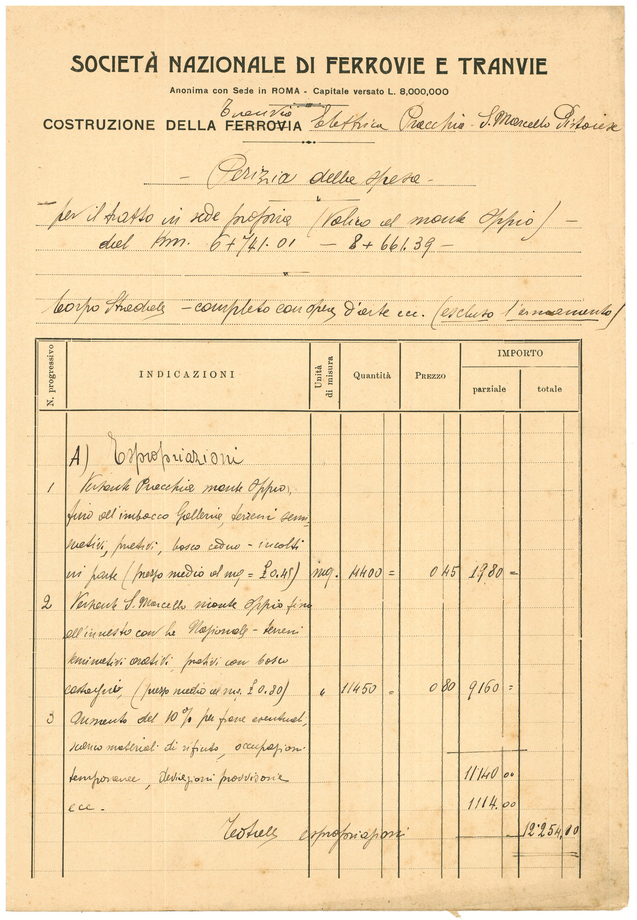 SOCIETÀ NAZIONALE DI FERROVIE E TRANVIE
Anonima con Sede in ROMA - Capitale versato L. 8,000,000
Tranvia
COSTRUZIONE DELLA FERROVIA Elettrica Pracchia - S. Marcello Pistoiese
- Perizia della spesa -
per il tratto in sede propria (Valico del monte Oppio) -
dal Km. 6+741.01 - 8+661.39 -
Corpo Stradale - completo con opere d'arte ecc. (escluso l'armamento)
N. progressivo
INDICAZIONI
Unità di misura
Quantità
PREZZO
IMPORTO
parziale
totale
A) Espropriazioni
1 Versante Pracchia monte Oppio,
fino all'imbocco Galleria, terreni semi-
nativi, prativi, bosco ceduo - incolti
in parte (prezzo medio al mq = £ 0.45) mq. 4400 = 0 45 1980 =
2 Versante S. Marcello monte Oppio fino
all'innesto con la Nazionale - terreni
seminativi, prativi con bosco
(prezzo medio al mq. £ 0.80) " 11450 = 0 80 9160 =
3 Aumento del 10% per frane eventuali,
scarico materiali di rifiuto, occupazioni
temporanee, deviazioni provvisorie 11140 00
ecc. 1114.00
Totale espropriazioni 12254,00